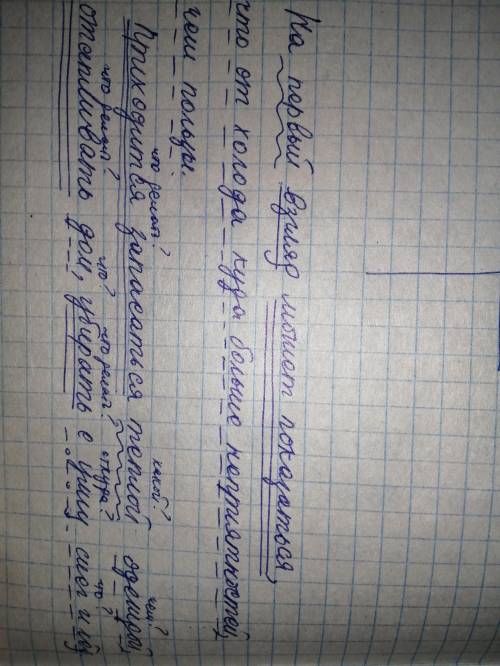 На первый взгляд может показаться,
что от холода куда больше неприятностей,
чем пользы.
что делать? какой? чем?
Приходится запасаться теплой одеждой
что делать? что? что делат? откуда? что?
отапливать дом, убирать с улиц снег и